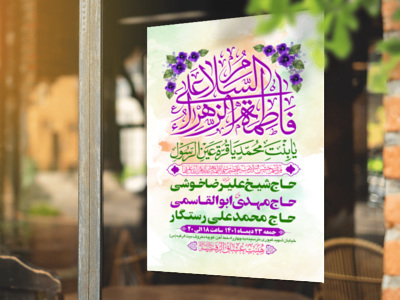 السلام علی
فاطمة الزهراء
یا بنت محمد یا قرة عین الرسول
حاج شیخ علیرضا خوشی
حاج مهدی ابوالقاسمی
حاج محمد علی رستگار
جمعه ۲۳ دیماه ۱۴۰۱ ساعت ۱۸ الی ۲۰